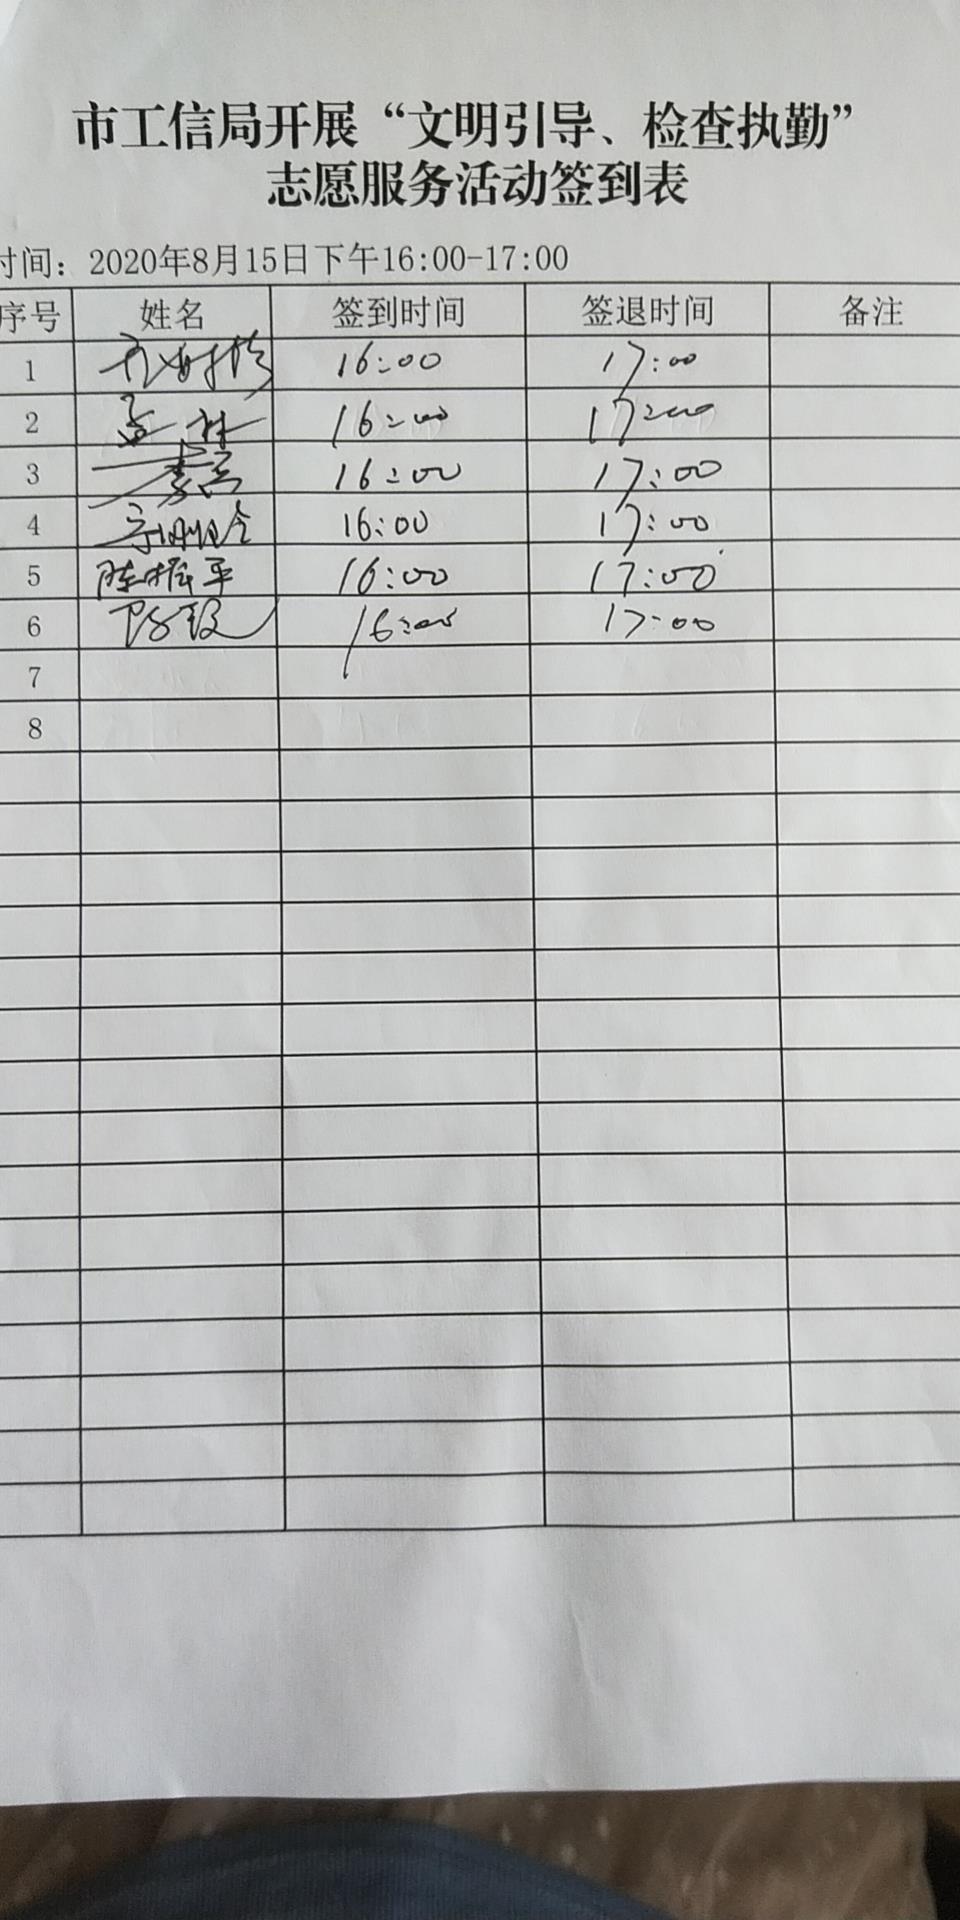 市工信局开展“文明引导、检查执勤”
志愿服务活动签到表
时间：2020年8月15日下午16:00-17:00
序号 姓名 签到时间 签退时间 备注
1 16:00 17:00
2 16:00 17:00
3 16:00 17:00
4 16:00 17:00
5 陈振平 16:00 17:00
6 16:00 17:00
7
8